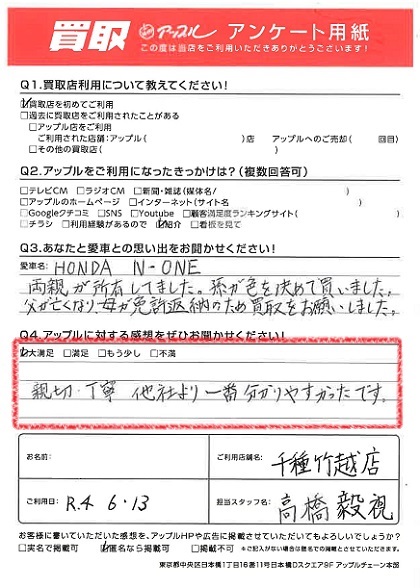 買取 アップル アンケート用紙
この度は当店をご利用いただきありがとうございます！
Q1.買取店利用について教えてください！
☑買取店を初めてご利用
□過去に買取店をご利用されたことがある
□アップル店をご利用
ご利用された店舗：アップル（　　）店　アップルへのご売却（　　回目）
□その他の買取店（　　）
Q2.アップルをご利用になったきっかけは？（複数回答可）
□テレビCM □ラジオCM □新聞・雑誌（媒体名/　　）
□アップルのホームページ □インターネット（サイト名　　）
□Googleクチコミ □SNS □Youtube □顧客満足度ランキングサイト（　　）
□チラシ □利用経験があるので ☑紹介 □看板を見て
Q3.あなたと愛車との思い出をお聞かせください！
愛車名：HONDA N-ONE
両親が所有してました。孫が色を決めて買いました。
父が亡くなり、母が免許返納のため買取をお願いしました。
Q4.アップルに対する感想をぜひお聞かせください！
☑大満足 □満足 □もう少し □不満
親切・丁寧 他社より一番分かりやすかったです。
お名前：
ご利用店舗名：千種竹越店
ご利用日：R.4 6・13
担当スタッフ名：高橋毅視
お客様に書いていただいた感想を、アップルHPや広告に掲載させていただいてもよろしいでしょうか？
□実名で掲載可 ☑匿名なら掲載可 □掲載不可 ＊ご記入がない場合は匿名での掲載とさせていただきます。
東京都中央区日本橋1丁目16番11号日本橋Dスクエア9F アップルチェーン本部